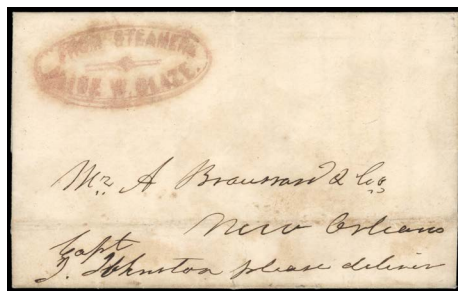 FROM STEAMER
W. 
Mr. A Braussard & Co.
New Orleans
Capt
J. Johnston please deliver